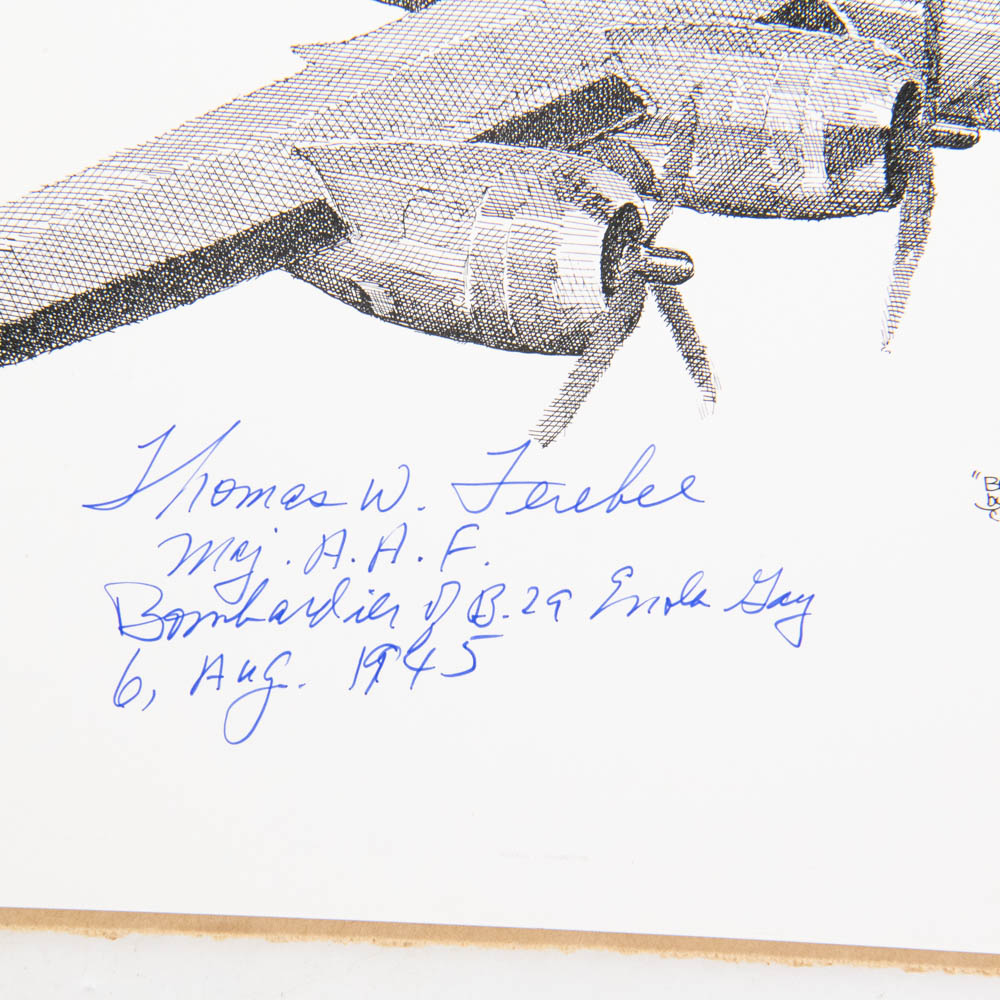 Thomas W. Ferebee
Maj. A.A.F.
Bombardier of B.29 Enola Gay
6, Aug. 1945